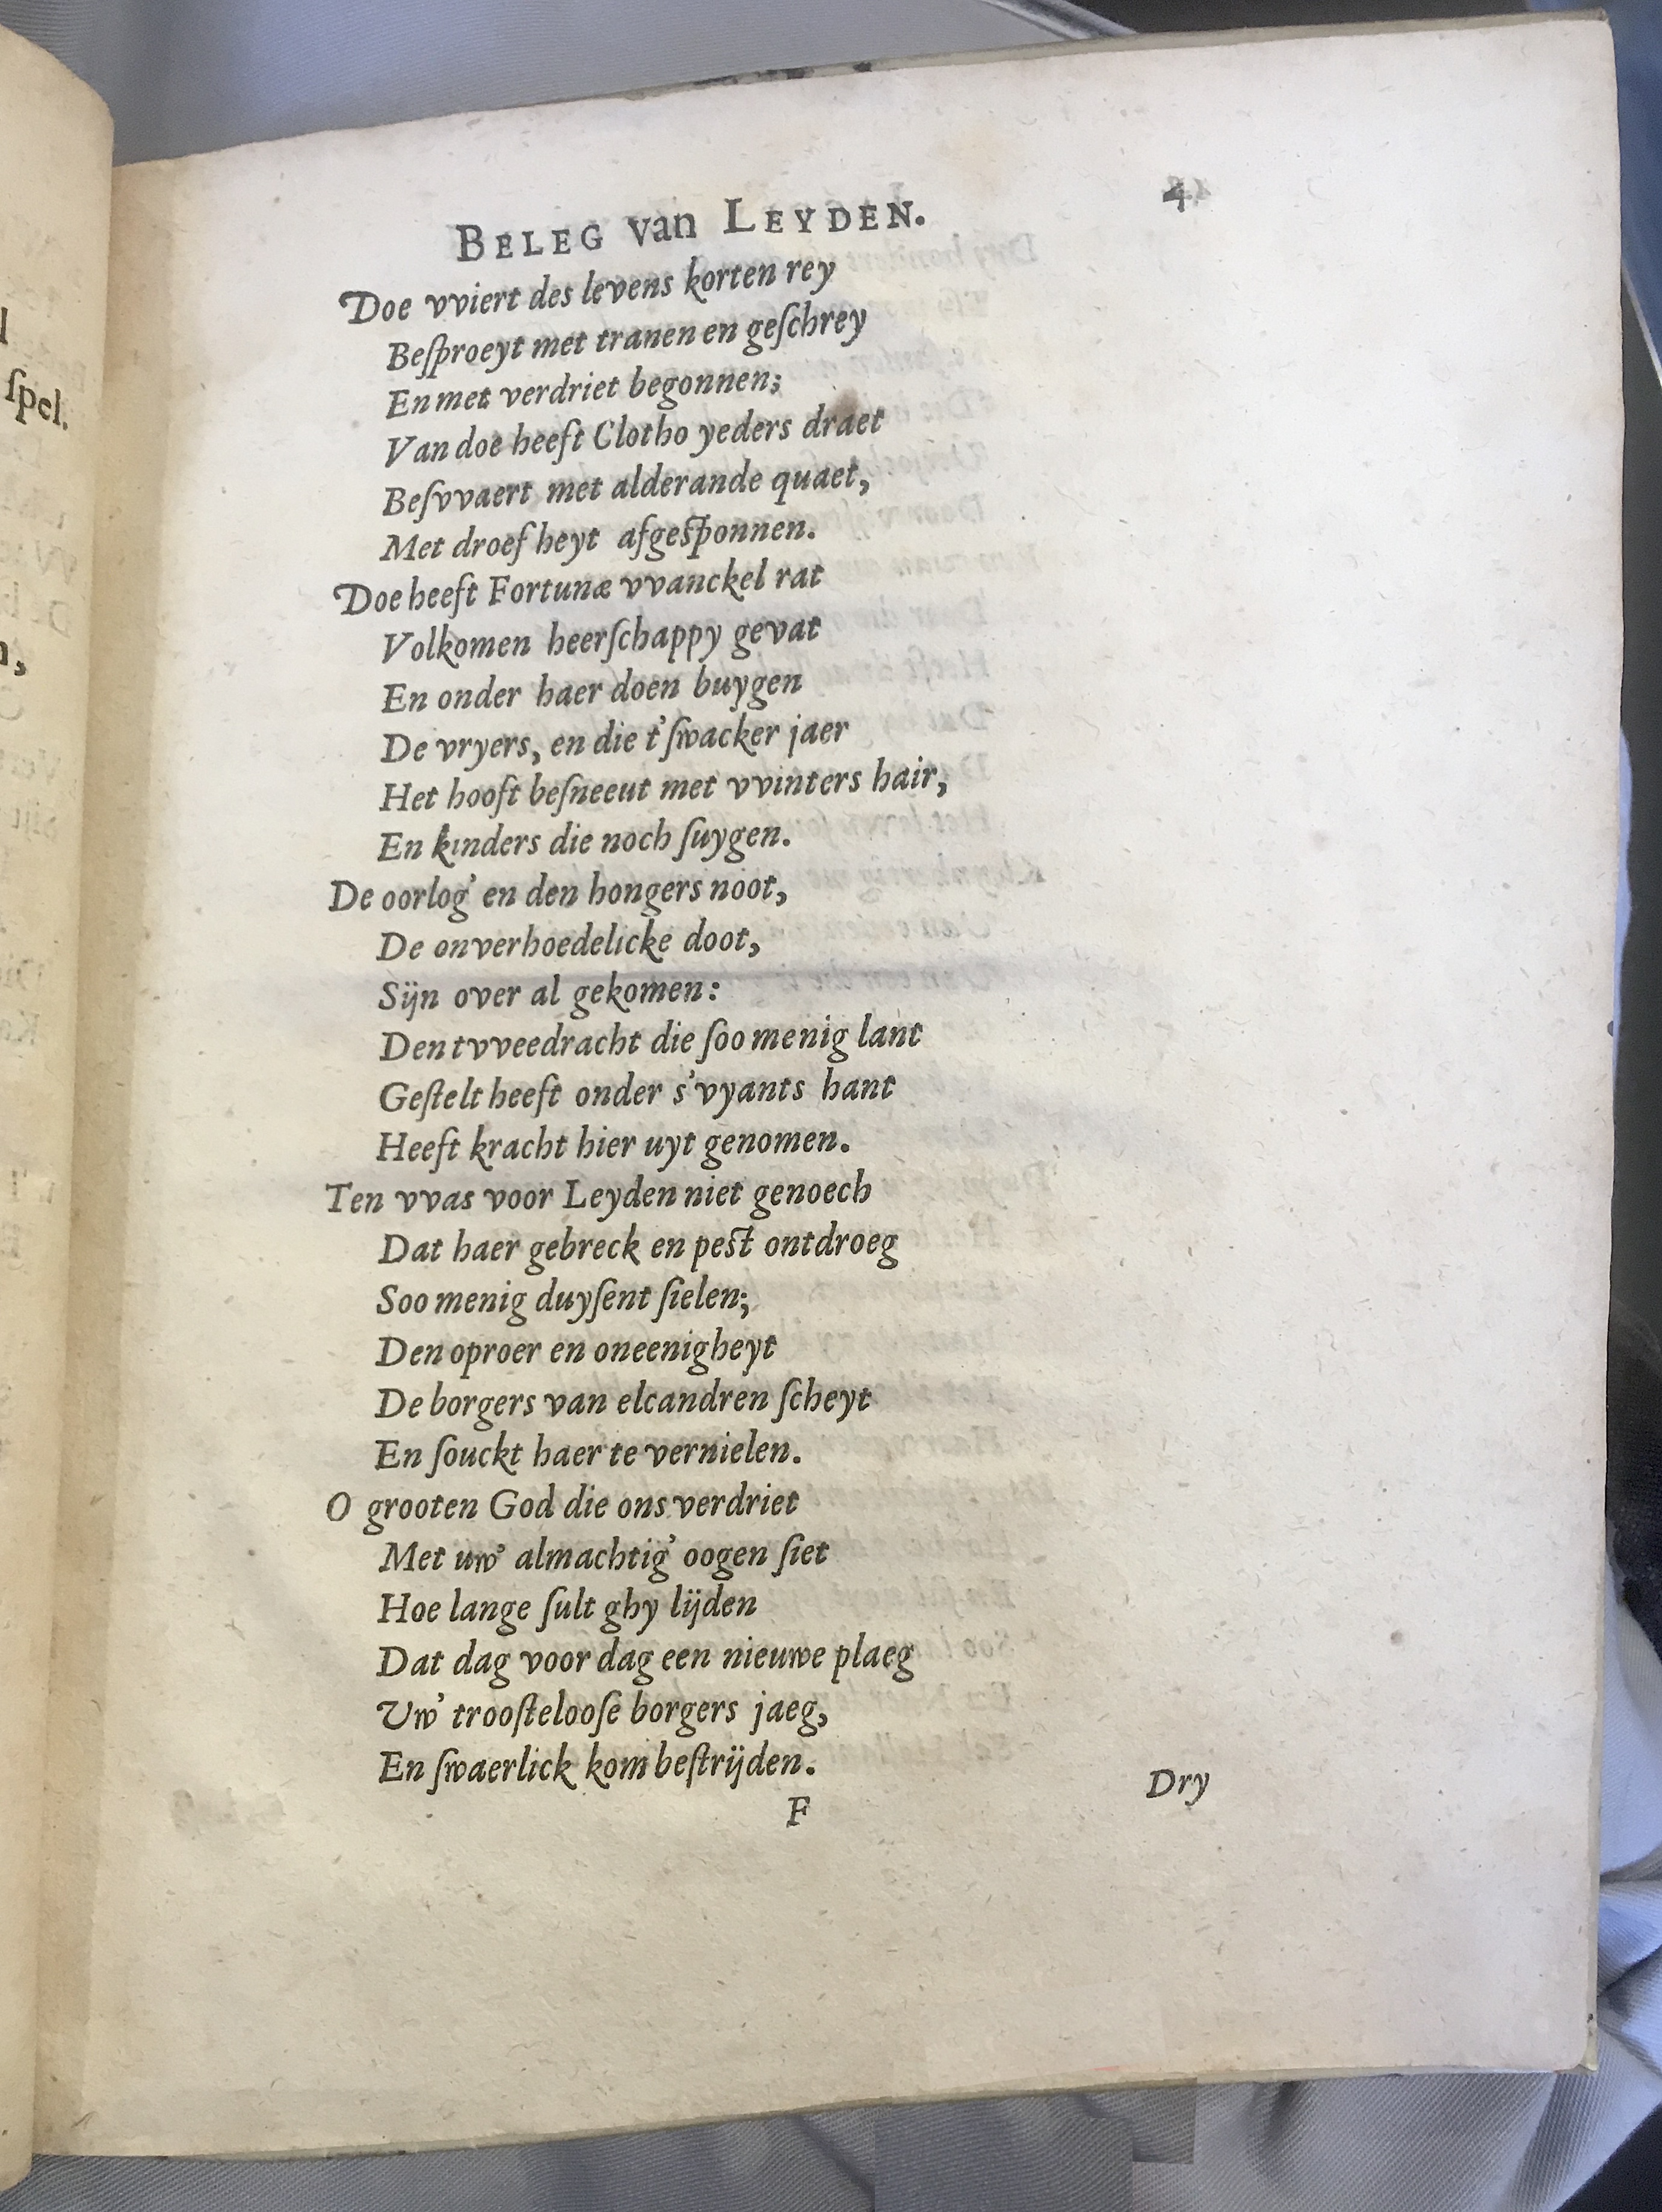 l
ſpel.
n,
BELEG van LEYDEN.
4
Doe vviert des levens korten rey
Beſproeyt met tranen en geſchrey
En met verdriet begonnen;
Van doe heeft Clotho yeders draet
Beſvvaert met alderande quaet,
Met droef heyt afgeſponnen.
Doe heeft Fortunæ vvanckel rat
Volkomen heerſchappy gevat
En onder haer doen buygen
De vryers, en die t'ſwacker jaer
Het hooft beſneeut met vvinters hair,
En kinders die noch ſuygen.
De oorlog' en den hongers noot,
De onverhoedelicke doot,
Sijn over al gekomen:
Den tvveedracht die ſoo menig lant
Geſtelt heeft onder s'vyants hant
Heeft kracht hier uyt genomen.
Ten vvas voor Leyden niet genoech
Dat haer gebreck en peſt ontdroeg
Soo menig duyſent ſielen;
Den oproer en oneenigheyt
De borgers van elcandren ſcheyt
En ſouckt haer te vernielen.
O grooten God die ons verdriet
Met uw' almachtig' oogen ſiet
Hoe lange ſult ghy lijden
Dat dag voor dag een nieuwe plaeg
Uw' trooſtelooſe borgers jaeg,
En ſwaerlick kom beſtrijden.
F
Dry